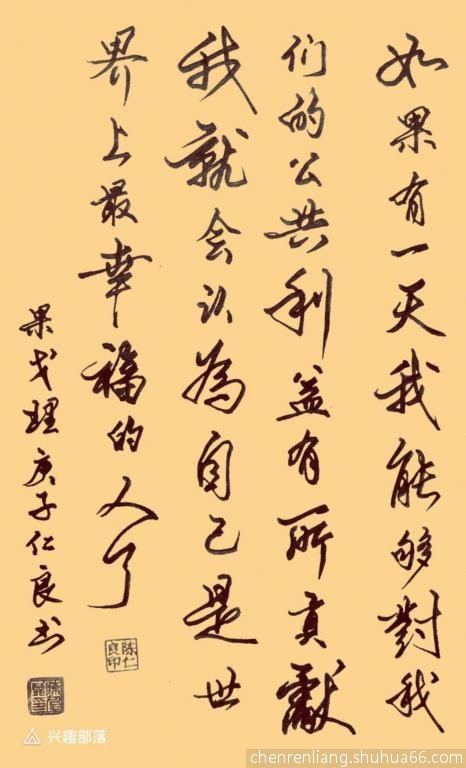 如果有一天我能够對我
们的公共利益有所貢獻
我就会认為自己是世
界上最幸福的人了
果戈理庚子仁良书
陈仁良印
兴趣部落
chenrenliang.shuhua66.com